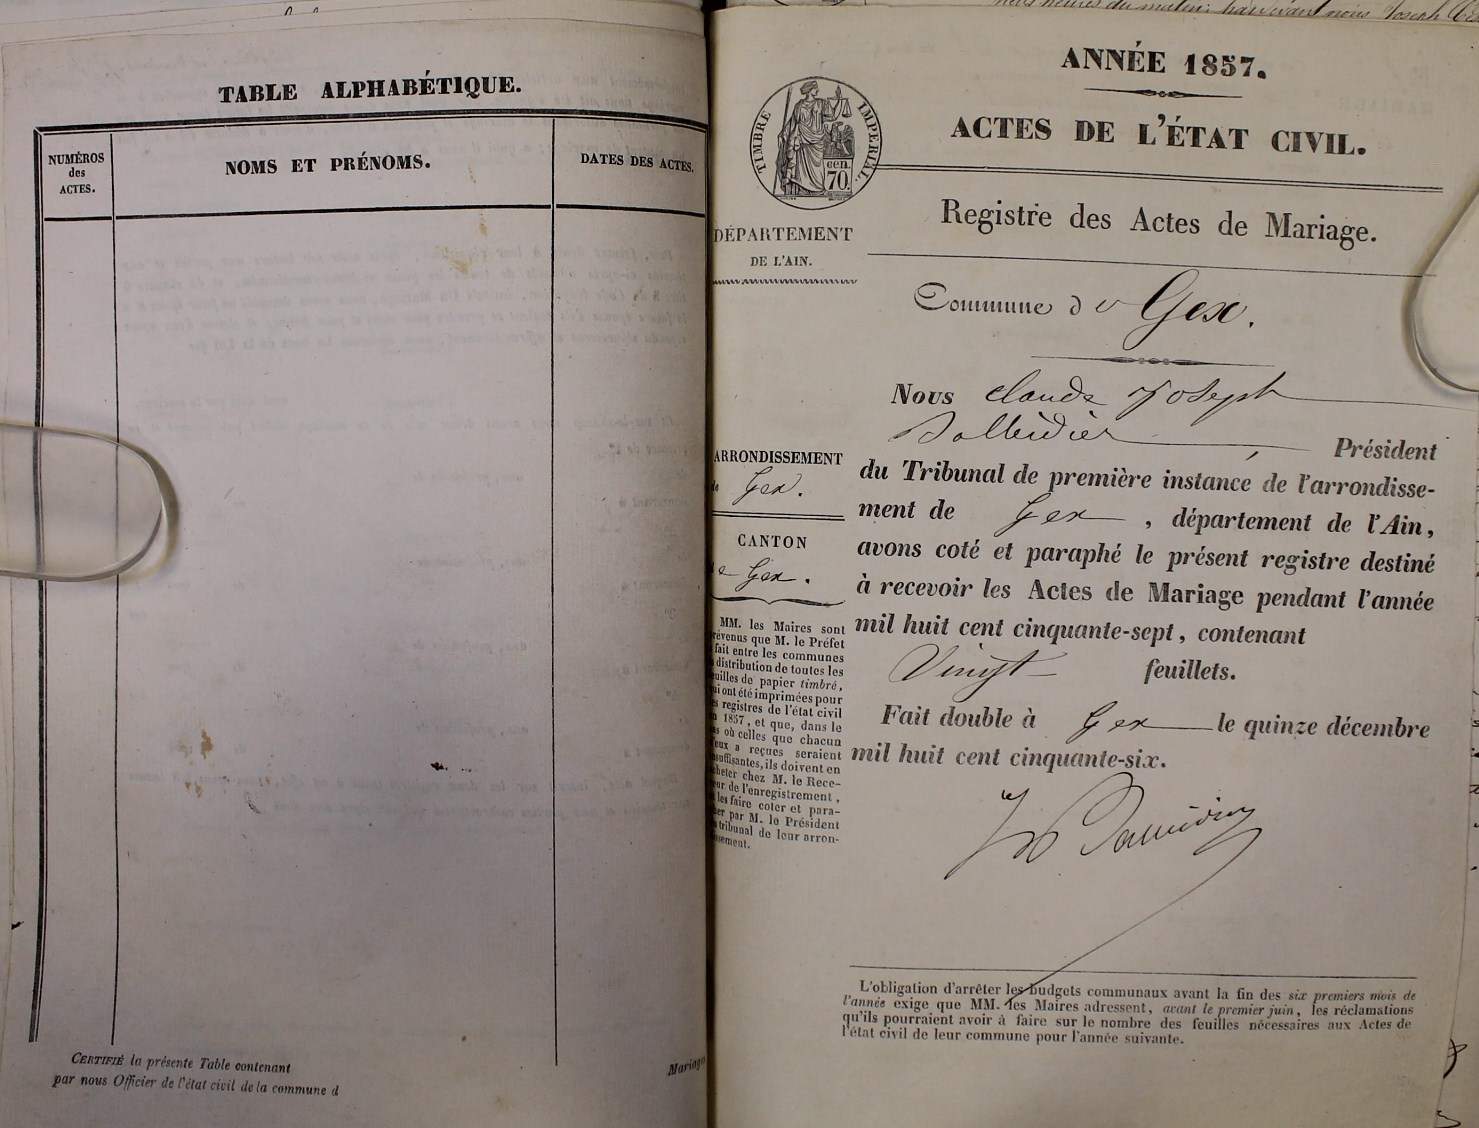 TABLE ALPHABÉTIQUE.
NUMÉROS
des
ACTES.
NOMS ET PRÉNOMS.
DATES DES ACTES.
CERTIFIÉ la présente Table contenant
par nous Officier de l'état civil de la commune d
Mariage
ANNÉE 1857.
ACTES DE L'ÉTAT CIVIL.
TIMBRE IMPERIAL.
cen.
70.
Registre des Actes de Mariage.
DÉPARTEMENT
DE L'AIN.
Commune de Gex.
ARRONDISSEMENT
de Gex.
CANTON
de Gex.
MM. les Maires sont
prévenus que M. le Préfet
a fait entre les communes
la distribution de toutes les
feuilles de papier timbré,
qui ont été imprimées pour
les registres de l'état civil
en 1857, et que, dans le
cas où celles que chacun
d'eux a reçues seraient
insuffisantes, ils doivent en
acheter chez M. le Rece-
veur de l'enregistrement,
et les faire coter et para-
pher par M. le Président
du tribunal de leur arron-
dissement.
Nous Claude Joseph
Président
du Tribunal de première instance de l'arrondisse-
ment de Gex, département de l'Ain,
avons coté et paraphé le présent registre destiné
à recevoir les Actes de Mariage pendant l'année
mil huit cent cinquante-sept, contenant
Vingt feuillets.
Fait double à Gex le quinze décembre
mil huit cent cinquante-six.
L'obligation d'arrêter les budgets communaux avant la fin des six premiers mois de
l'année exige que MM. les Maires adressent, avant le premier juin, les réclamations
qu'ils pourraient avoir à faire sur le nombre des feuilles nécessaires aux Actes de
l'état civil de leur commune pour l'année suivante.